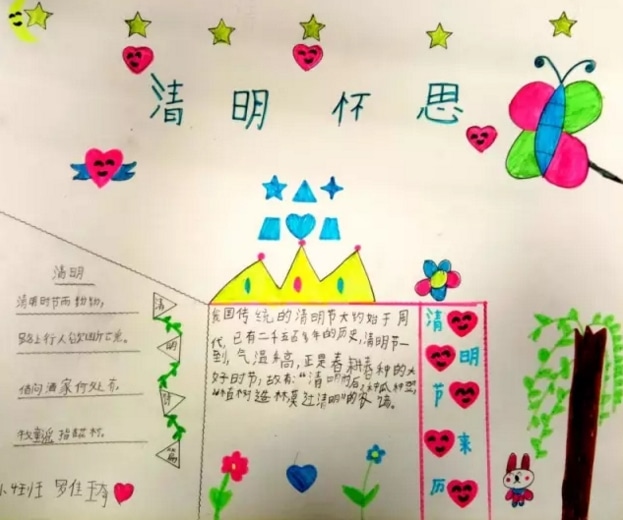 清明怀思
清明
清明时节雨纷纷,
路上行人欲断魂。
借问酒家何处有,
牧童遥指杏村。
清
明
诗
篇
我国传统的清明节大约始于周
代,已有二千五百多年的历史,清明节一
到,气温升高,正是春耕春种的大
好时节,故有:"清明前后,种瓜种豆,
"植树造林莫过清明"的农谚。
清
明
节
来
历